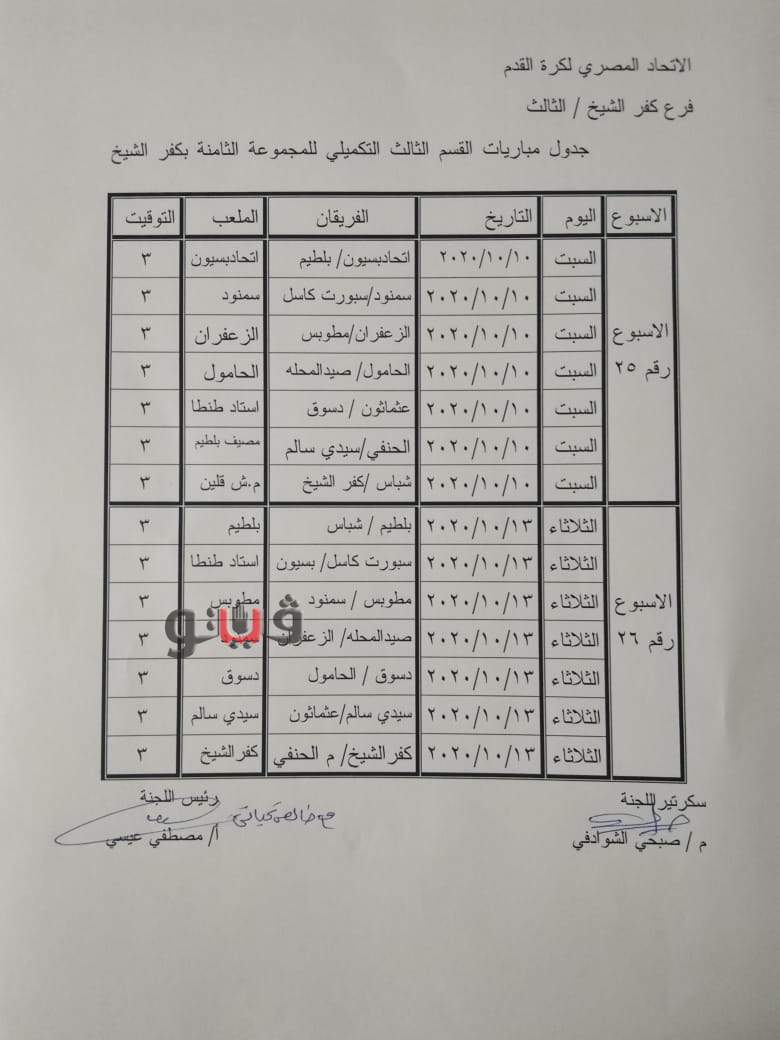 الاتحاد المصري لكرة القدم
فرع كفر الشيخ / الثالث
جدول مباريات القسم الثالث التكميلي للمجموعة الثامنة بكفر الشيخ
الاسبوع اليوم التاريخ الفريقان الملعب التوقيت
السبت ٢٠٢٠/١٠/١٠ اتحادبسيون/ بلطيم اتحادبسيون ٣
السبت ٢٠٢٠/١٠/١٠ سمنود/سبورت كاسل سمنود ٣
الاسبوع السبت ٢٠٢٠/١٠/١٠ الزعفران/مطوبس الزعفران ٣
رقم ٢٥ السبت ٢٠٢٠/١٠/١٠ الحامول/ صيدالمحله الحامول ٣
السبت ٢٠٢٠/١٠/١٠ عثماثون / دسوق استاد طنطا ٣
السبت ٢٠٢٠/١٠/١٠ الحنفي/سيدي سالم مصيف بلطيم ٣
السبت ٢٠٢٠/١٠/١٠ شباس /كفر الشيخ م.ش قلين ٣
الثلاثاء ٢٠٢٠/١٠/١٣ بلطيم / شباس بلطيم ٣
الثلاثاء ٢٠٢٠/١٠/١٣ سبورت كاسل/ بسيون استاد طنطا ٣
الاسبوع الثلاثاء ٢٠٢٠/١٠/١٣ مطوبس / سمنود مطوبس ٣
رقم ٢٦ الثلاثاء ٢٠٢٠/١٠/١٣ صيدالمحله/ الزعفران ٣
الثلاثاء ٢٠٢٠/١٠/١٣ دسوق / الحامول دسوق ٣
الثلاثاء ٢٠٢٠/١٠/١٣ سيدي سالم/عثماثون سيدي سالم ٣
الثلاثاء ٢٠٢٠/١٠/١٣ كفرالشيخ/ م الحنفي كفرالشيخ ٣
ڤيتو
سكرتير اللجنة رئيس اللجنة
مع خالص تحياتي
م / صبحي الشوادفي أ/ مصطفي عيسي